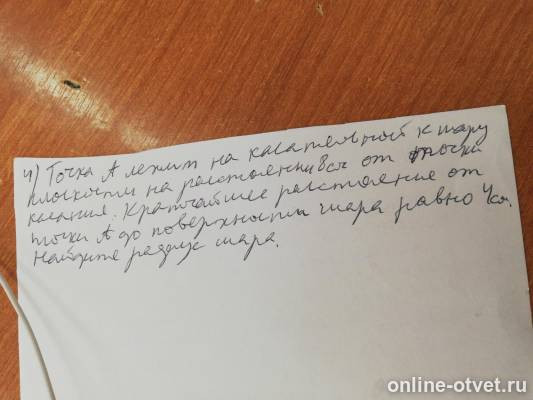 4) Точка А лежит на касательной к шару
плоскости на расстоянии 8см от точки
касания. Кратчайшее расстояние от
точки А до поверхности шара равно 4см.
Найдите радиус шара.
online-otvet.ru